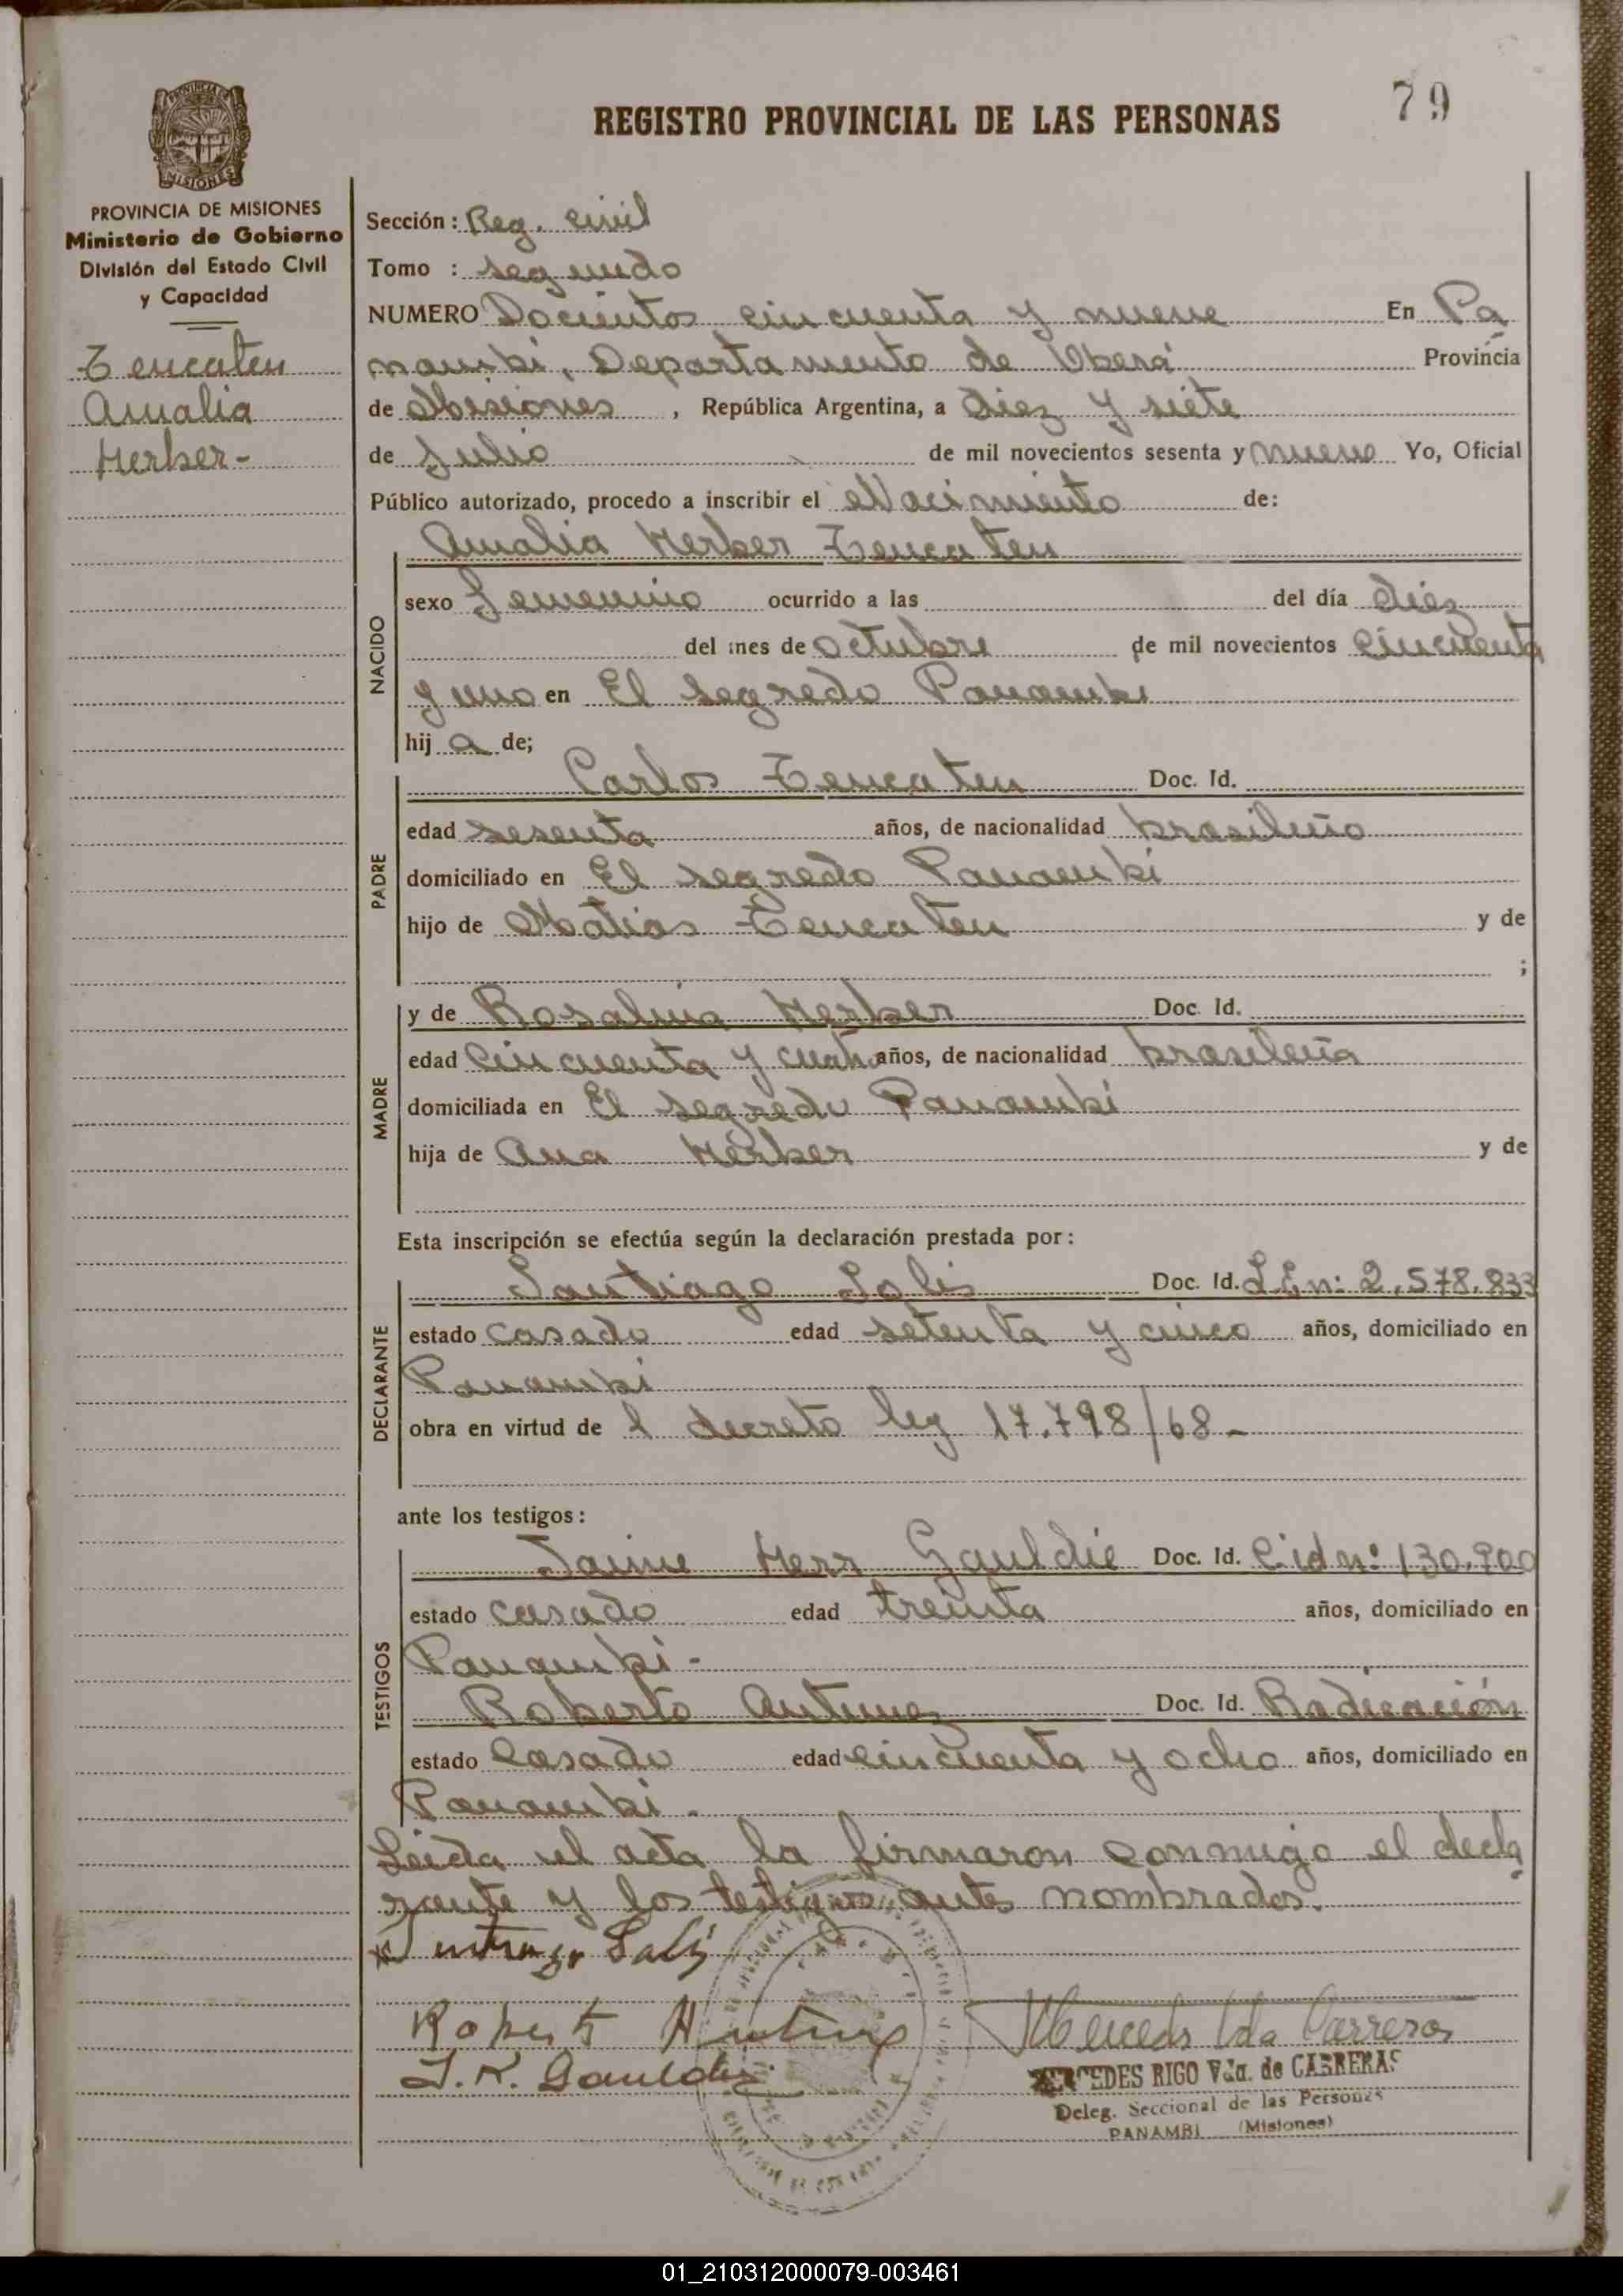 79
REGISTRO PROVINCIAL DE LAS PERSONAS
MISIONES
PROVINCIA DE MISIONES
Ministerio de Gobierno
División del Estado Civil
y Capacidad
Tencaten
Amalia
Herber-
Sección: Reg. civil
Tomo : segundo
NUMERO Docientos cincuenta y nueve En Pa
nambí, Departamento de Oberá Provincia
de Misiones, República Argentina, a diez y siete
de Julio de mil novecientos sesenta y nueve Yo, Oficial
Público autorizado, procedo a inscribir el Nacimiento de:
Amalia Herber Tencaten
NACIDO
sexo Femenino ocurrido a las del día diez
del mes de octubre de mil novecientos cincuenta
y uno en El segredo Panambi
hij a de;
PADRE
Carlos Tencaten Doc. Id.
edad sesenta años, de nacionalidad brasileño
domiciliado en El segredo Panambi
hijo de Matias Tencaten y de
;
MADRE
y de Rosalina Herber Doc. Id.
edad cincuenta y cuatro años, de nacionalidad brasileña
domiciliada en El segredo Panambi
hija de Ana Herber y de
Esta inscripción se efectúa según la declaración prestada por:
DECLARANTE
Santiago Solis Doc. Id. L.E n: 2.578.833
estado casado edad setenta y cinco años, domiciliado en
Panambi
obra en virtud de l decreto ley 17.798/68-
ante los testigos:
TESTIGOS
Jaime Herr Gauldie Doc. Id. C.id nº 130.900
estado casado edad treinta años, domiciliado en
Panambi-
Roberto Antunez Doc. Id. Radicación
estado Casado edad cincuenta y ocho años, domiciliado en
Panambi.
Leida el acta la firmaron conmigo el decla
rante y los testigos antes nombrados.
Solis
Roberto Antunez
J.K. Gauldie
Mercedes Vda Carreras
MERCEDES RIGO Vda. de CABRERAS
Deleg. Seccional de las Personas
PANAMBI (Misiones)
01_210312000079-003461